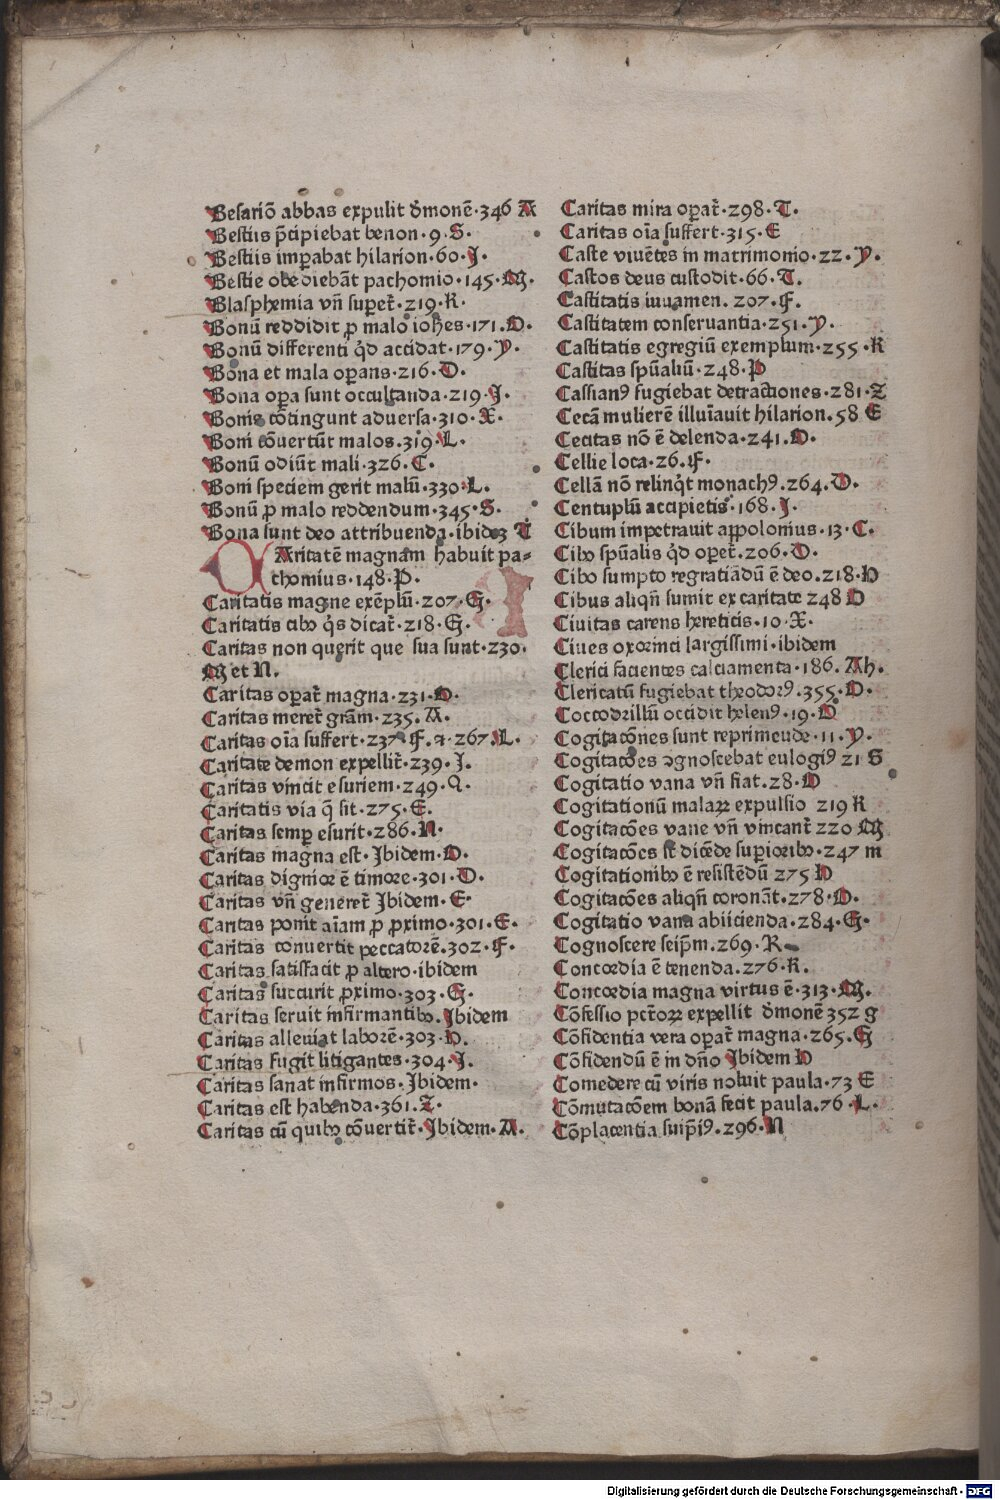 Besariō abbas expulit dm̄onē·346 A
Bestiis p̄cipiebat benon·9·S·
Bestiis imꝑabat hilarion·60·J·
Bestie obediebāt pachomio·145·M·
Blasphemia vn̄ suꝑet̄·219·R·
Bonū reddidit ꝓ malo ioh̄es·171·O·
Bonū differenti qd̄ accidat·179·Y·
Bona et mala oꝑans·216·D·
Bona oꝑa sunt occultanda·219·J·
Bonis cōtingunt aduersa·310·X·
Boni cōuertūt malos·319·L·
Bonū odiūt mali·326·C·
Boni speciem gerit malū·330·L·
Bonū ꝓ malo reddendum·345·S·
Bona sunt deo attribuenda·ibidēꝫ T
CAritatē magnam habuit pa-
chomius·148·P·
Caritatis magne exēplū·207·G·
Caritatis cibꝯ qs̄ dicat̄·218·G·
Caritas non querit que sua sunt·230·
M et N.
Caritas oꝑat̄ magna·231·O·
Caritas meret̄ grām·235·A·
Caritas oīa suffert·237·F·⁊·267·L·
Caritate demon expellit̄·239·J·
Caritas vincit esuriem·249·Q·
Caritatis via q̄ sit·275·E·
Caritas semꝑ esurit·286·N·
Caritas magna est·Jbidem·O·
Caritas dignior ē timore·301·D·
Caritas vn̄ generet̄ Jbidem·E·
Caritas ponit aīam ꝓ ꝓximo·301·E·
Caritas conuertit peccatorē·302·F·
Caritas satisfacit ꝓ altero·ibidem
Caritas succurit ꝓximo·303·G·
Caritas seruit infirmantibꝰ·Jbidem
Caritas alleuiat laborē·303·H·
Caritas fugit litigantes·304·J·
Caritas sanat infirmos·Jbidem·
Caritas est habenda·361·T·
Caritas cū quibꝰ cōuertit̄·Jbidem·A·
Caritas mira oꝑat̄·298·T·
Caritas oīa suffert·315·E
Caste viuētes in matrimonio·22·Y·
Castos deus custodit·66·T·
Castitatis iuuamen·207·F·
Castitatem conseruantia·251·Y·
Castitatis egregiū exemplum·255·R
Castitas spūaliū·248·P
Cassianꝰ fugiebat detractiones·281·Z
Cecā mulierē illuīauit hilarion·58 E
Cecitas nō ē delenda·241·O·
Cellie loca·26·F·
Cellā nō relinqt̄ monachꝰ·264·D·
Centuplū accipietis·168·J·
Cibum impetrauit appolonius·13·C·
Cibꝰ spūalis qd̄ oꝑet̄·206·D·
Cibo sumpto regratiādū ē deo·218·H
Cibus aliqn̄ sumit ex caritate 248 O
Ciuitas carens hereticis·10·X·
Ciues oxorinci largissimi·ibidem
Clerici facientes calciamenta·186·Ah·
Clericatū fugiebat theodorꝰ·355·O·
Coccodrillū occidit helenꝰ·19·O
Cogitacōnes sunt reprimende·11·Y·
Cogitacōes ꝯgnoscebat eulogiꝰ 21 S
Cogitatio vana vn̄ fiat·28·O
Cogitationū malaꝝ expulsio 219 R
Cogitacōes vane vn̄ vincant̄ 220 M
Cogitacōes st̄ dicēde suꝑioribꝰ·247 m
Cogitationibꝰ ē resistēdū 275 H
Cogitacōes aliqn̄ coronāt·278·O·
Cogitatio vana abiicienda·284·G·
Cognoscere seip̄m·269·R·
Concordia ē tenenda·276·R·
Concordia magna virtus ē·313·M·
Cōfessio pct̄oꝝ expellit dm̄onē 352 g
Cōfidentia vera oꝑat̄ magna·265·G
Cōfidendū ē in dn̄o Jbidem H
Comedere cū viris noluit paula·73 E
Cōmutacōem bonā fecit paula·76·L·
Cōplacentia suip̄iꝰ·296·N
Digitalisierung gefördert durch die Deutsche Forschungsgemeinschaft - DFG